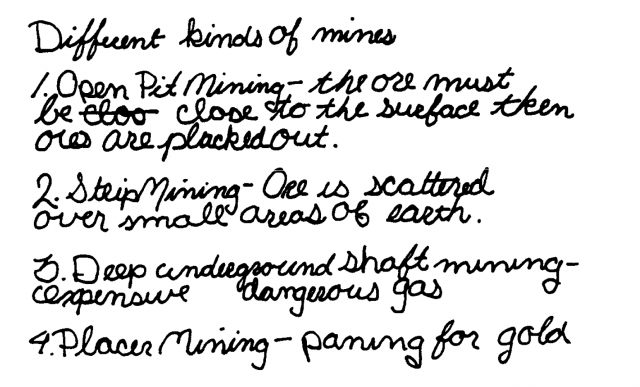 Different kinds of mines
1. Open Pit Mining - the ore must
be close to the surface then
ores are placked out.
2. Strip Mining - Ore is scattered
over small areas of earth.
3. Deep underground shaft mining -
expensive dangerous gas
4. Placer Mining - paning for gold